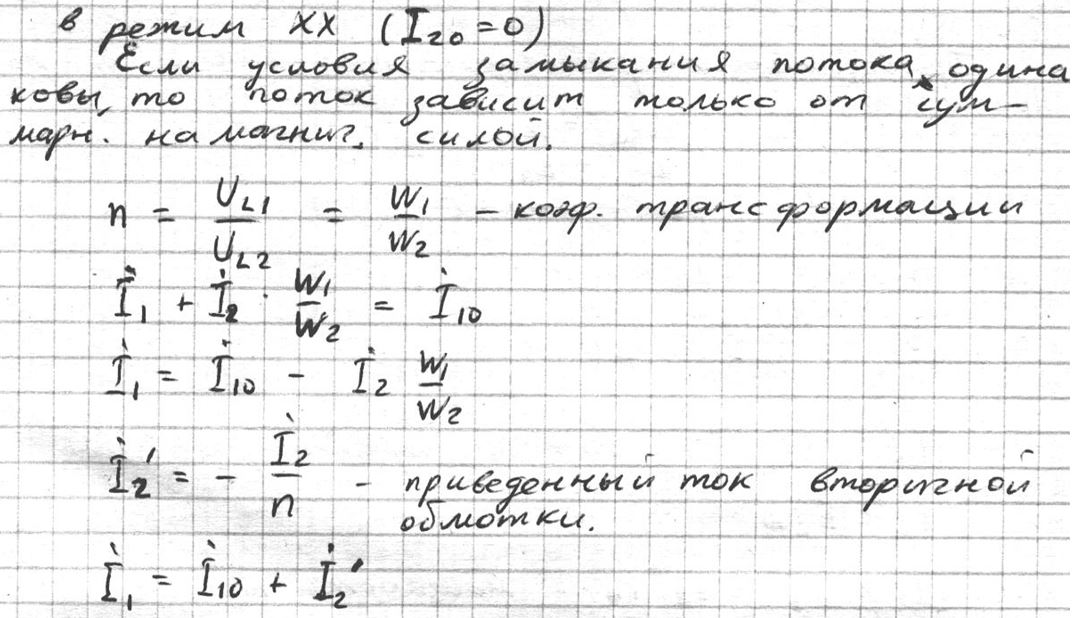 в режим ХХ (I₂₀ = 0)
Если условия замыкания потока одина
ковы, то поток зависит только от сум-
марн. намагнич. силой.
n = U_L1 / U_L2 = W₁ / W₂ – коэф. трансформации
İ₁ + İ₂ · W₁ / W₂ = İ₁₀
İ₁ = İ₁₀ – İ₂ W₁ / W₂
İ₂' = – İ₂ / n – приведенный ток вторичной
обмотки.
İ₁ = İ₁₀ + İ₂'